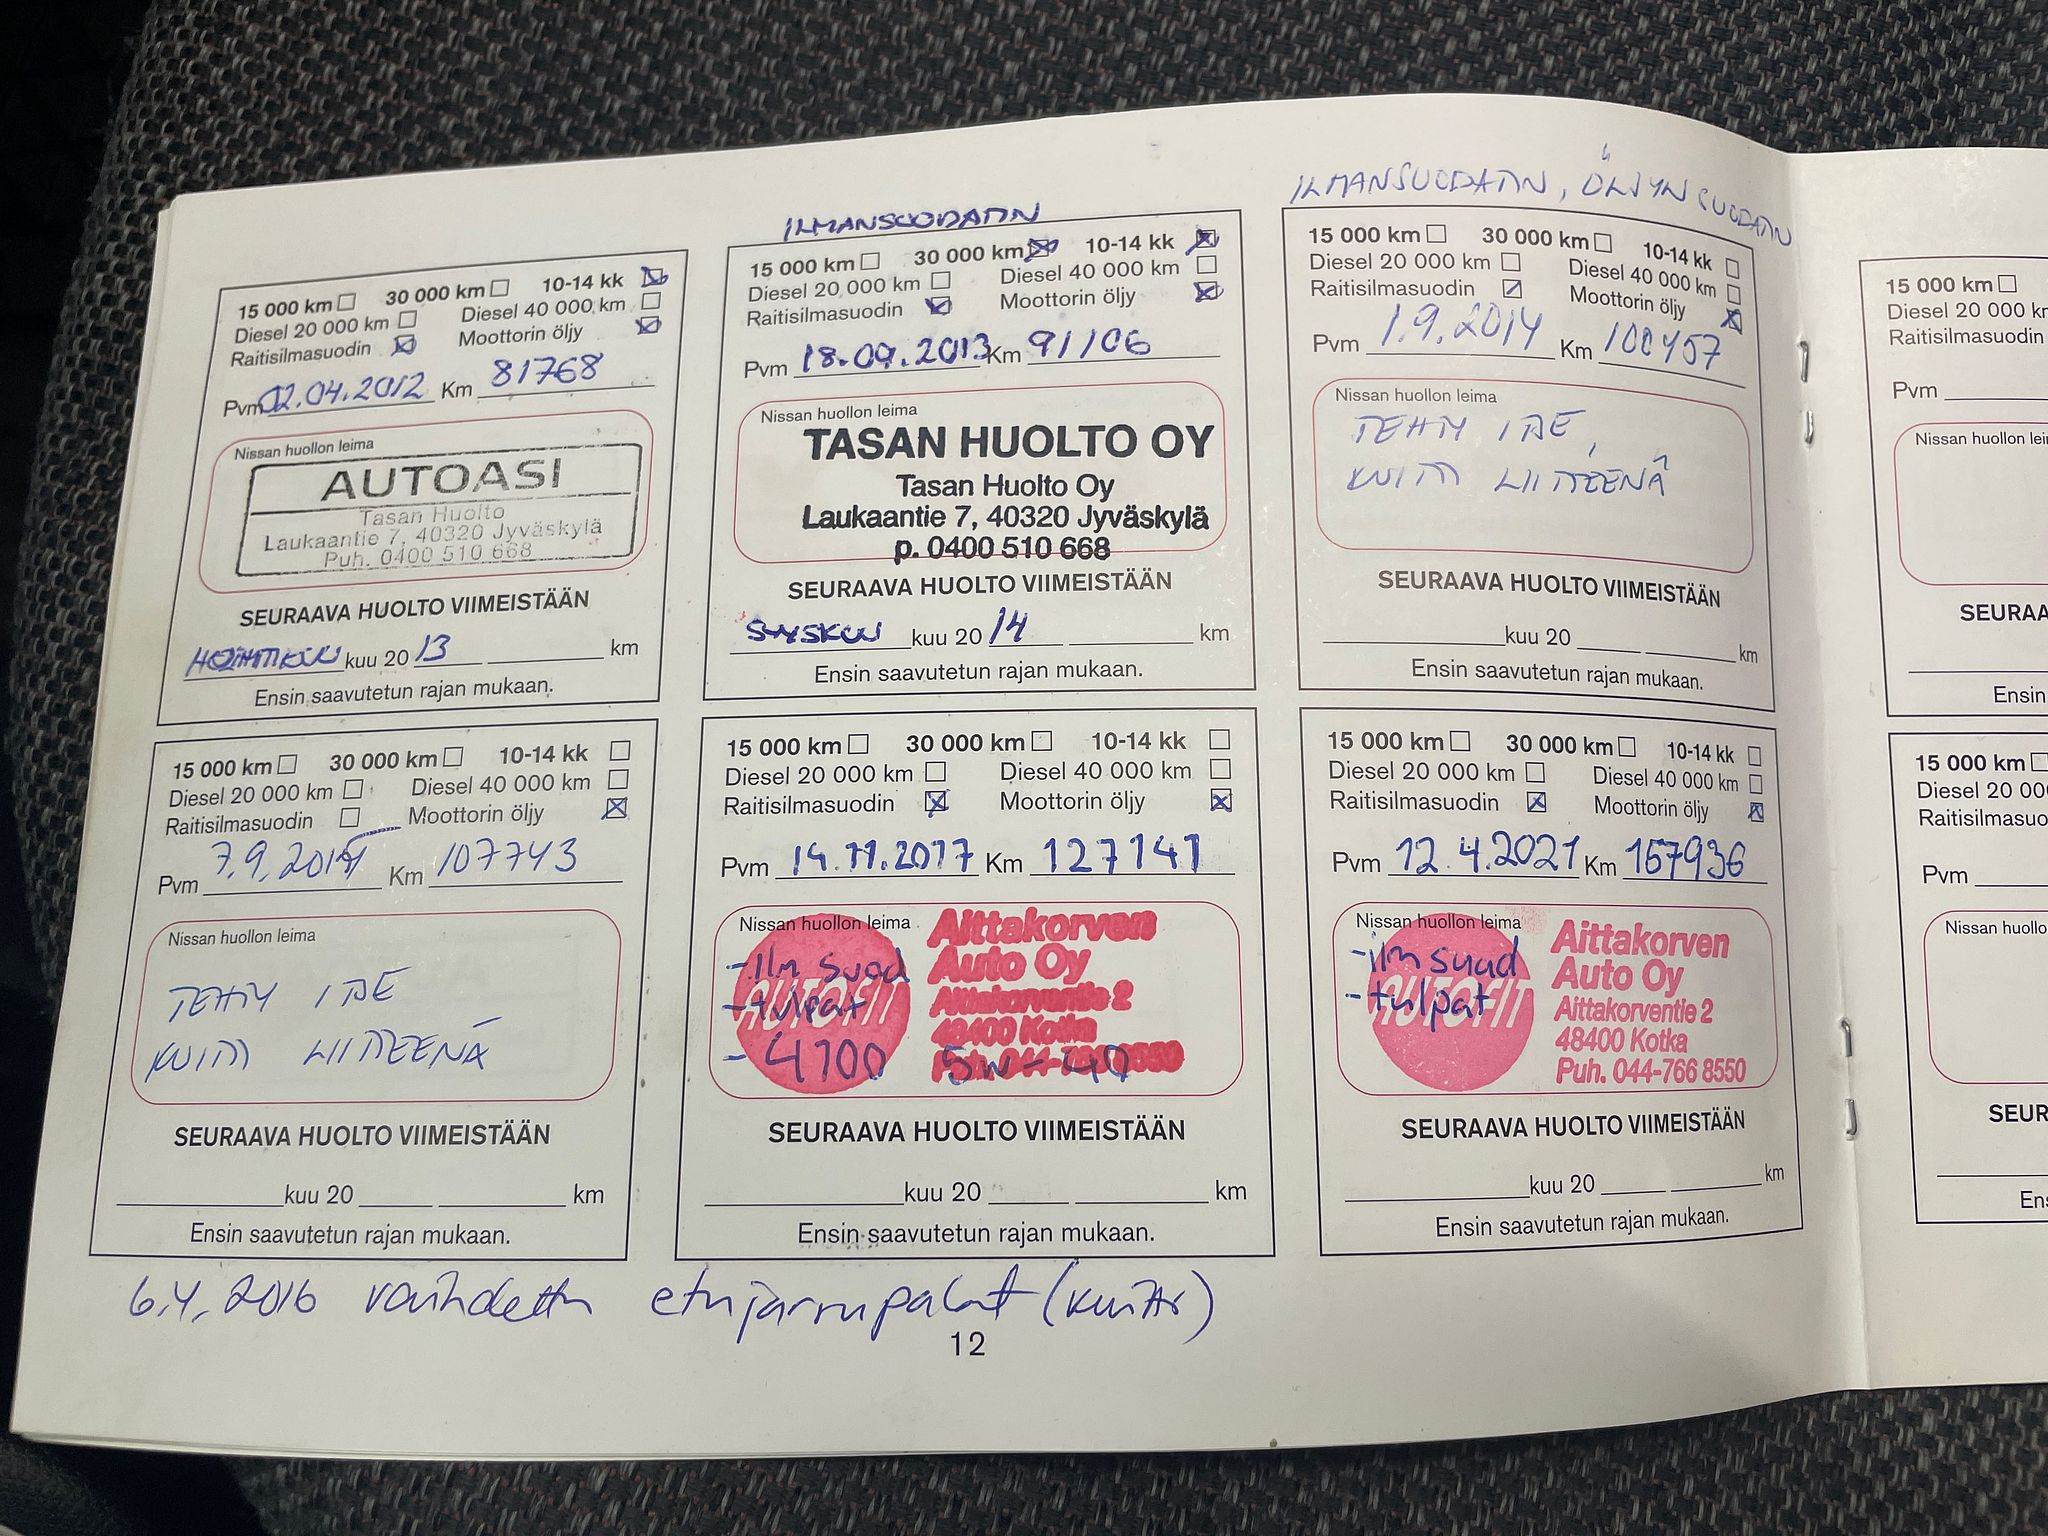 ILMANSUODATIN
15 000 km 30 000 km 10-14 kk
Diesel 20 000 km Diesel 40 000 km
Raitisilmasuodin Moottorin öljy
Pvm 02.04.2012 Km 81768
Nissan huollon leima
AUTOASI
Tasan Huolto
Laukaantie 7, 40320 Jyväskylä
Puh. 0400 510 668
SEURAAVA HUOLTO VIIMEISTÄÄN
kuu 20 13 km
Ensin saavutetun rajan mukaan.
15 000 km 30 000 km 10-14 kk
Diesel 20 000 km Diesel 40 000 km
Raitisilmasuodin Moottorin öljy
Pvm 18.09.2013 Km 91106
Nissan huollon leima
TASAN HUOLTO OY
Tasan Huolto Oy
Laukaantie 7, 40320 Jyväskylä
p. 0400 510 668
SEURAAVA HUOLTO VIIMEISTÄÄN
SYYSKUU kuu 20 14 km
Ensin saavutetun rajan mukaan.
ILMANSUODATIN, ÖLJYNSUODATIN
15 000 km 30 000 km 10-14 kk
Diesel 20 000 km Diesel 40 000 km
Raitisilmasuodin Moottorin öljy
Pvm 1.9.2014 Km 100457
Nissan huollon leima
TEHTY ITSE,
KUITTI LIITTEENÄ
SEURAAVA HUOLTO VIIMEISTÄÄN
kuu 20 km
Ensin saavutetun rajan mukaan.
15 000 km 30 000 km 10-14 kk
Diesel 20 000 km Diesel 40 000 km
Raitisilmasuodin Moottorin öljy
Pvm Km 107743
Nissan huollon leima
TEHTY ITSE
KUITTI LIITTEENÄ
SEURAAVA HUOLTO VIIMEISTÄÄN
kuu 20 km
Ensin saavutetun rajan mukaan.
15 000 km 30 000 km 10-14 kk
Diesel 20 000 km Diesel 40 000 km
Raitisilmasuodin Moottorin öljy
Pvm 14.11.2017 Km 127141
Nissan huollon leima
Aittakorven
Auto Oy
Aittakorventie 2
48400 Kotka
AUTOFIT
- ilm suod
- tulpat
- 4100 5w-40
SEURAAVA HUOLTO VIIMEISTÄÄN
kuu 20 km
Ensin saavutetun rajan mukaan.
15 000 km 30 000 km 10-14 kk
Diesel 20 000 km Diesel 40 000 km
Raitisilmasuodin Moottorin öljy
Pvm 12.4.2021 Km 157936
Nissan huollon leima
Aittakorven
Auto Oy
Aittakorventie 2
48400 Kotka
Puh. 044-766 8550
AUTOFIT
- ilm suod
- tulpat
SEURAAVA HUOLTO VIIMEISTÄÄN
kuu 20 km
Ensin saavutetun rajan mukaan.
6.4.2016 vaihdettu etujarrupalat (kuitti)
12
15 000 km
Diesel 20 000 km
Raitisilmasuodin
Pvm
Nissan huollon
SEURAA
Ensin
15 000 km
Diesel 20 00
Raitisilmasuo
Pvm
Nissan huollo
SEUR
Ens